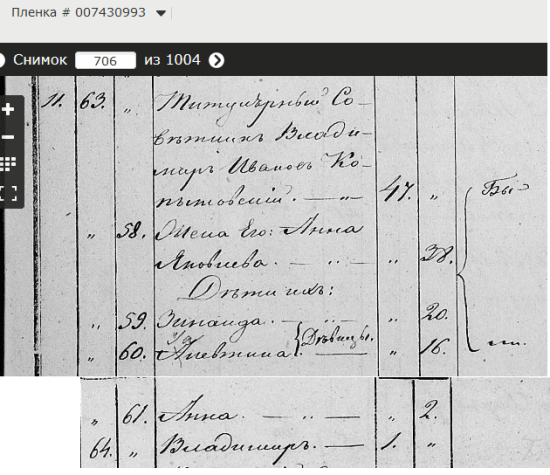 Пленка # 007430993
Снимок 706 из 1004
11. 63. „ Титулярный Со-
вѣтникъ Влади-
миръ Ивановъ Ко-
пытовскій. — „ — 47. „ Бы
„ 58. Жена Его: Анна
Яковлева. — „ — „ 38.
Дѣти ихъ:
„ 59. Зинаида. — „ — „ 20.
„ 60. Алевтина. Дѣвицы. — „ 16. ли.
„ 61. Анна. — „ — „ 2.
64. „ Владимиръ. — 1. „